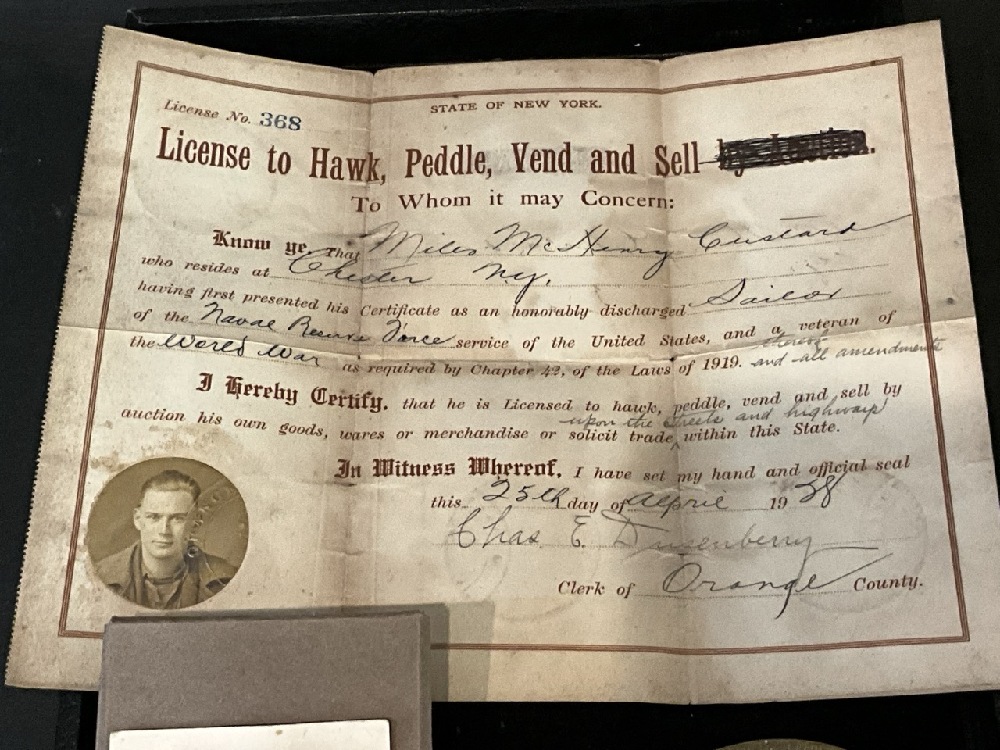 License No. 368
STATE OF NEW YORK.
License to Hawk, Peddle, Vend and Sell
To Whom it may Concern:
Know ye that Miles McHenry Custard
who resides at Chester Ny.
having first presented his Certificate as an honorably discharged Sailor
of the Naval Reserve Force service of the United States, and a veteran of
the World War as required by Chapter 42, of the Laws of 1919. thereof and all amendments
I Hereby Certify, that he is Licensed to hawk, peddle, vend and sell by
upon the streets and highways
auction his own goods, wares or merchandise or solicit trade within this State.
In Witness Whereof, I have set my hand and official seal
this 25th day of April 1938
Chas. E. Dusenberry
Clerk of Orange County.